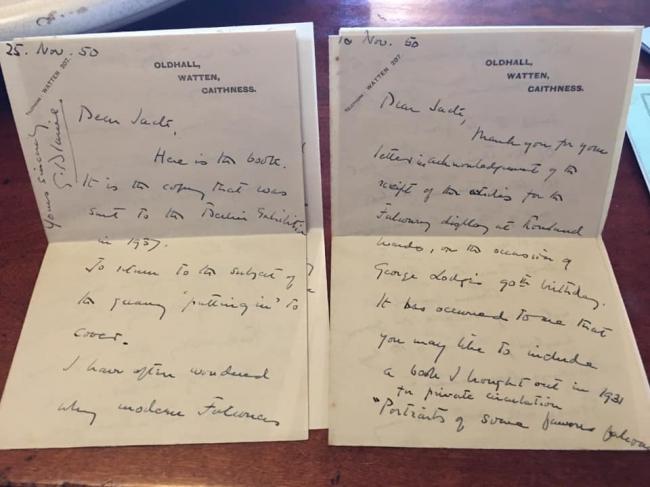 25. Nov. 50
OLDHALL,
WATTEN,
CAITHNESS.
WATTEN 207.
Dear Jack,
Here is the book.
It is the copy that was
sent to the Berlin Exhibition
in 1937.
To return to the subject of
the quarry "putting in" to
cover.
I have often wondered
why modern Falconers
Yours sincerely
Nov. 50
OLDHALL,
WATTEN,
CAITHNESS.
WATTEN 207.
Dear Jack,
Thank you for your
letter in acknowledgement of the
receipt of the articles for the
Falconry display at Rowland
Wards, on the occasion of
George Lodge's 90th birthday.
It has occurred to me that
you may like to include
a book I brought out in 1931
for private circulation
"Portraits of some famous falcons